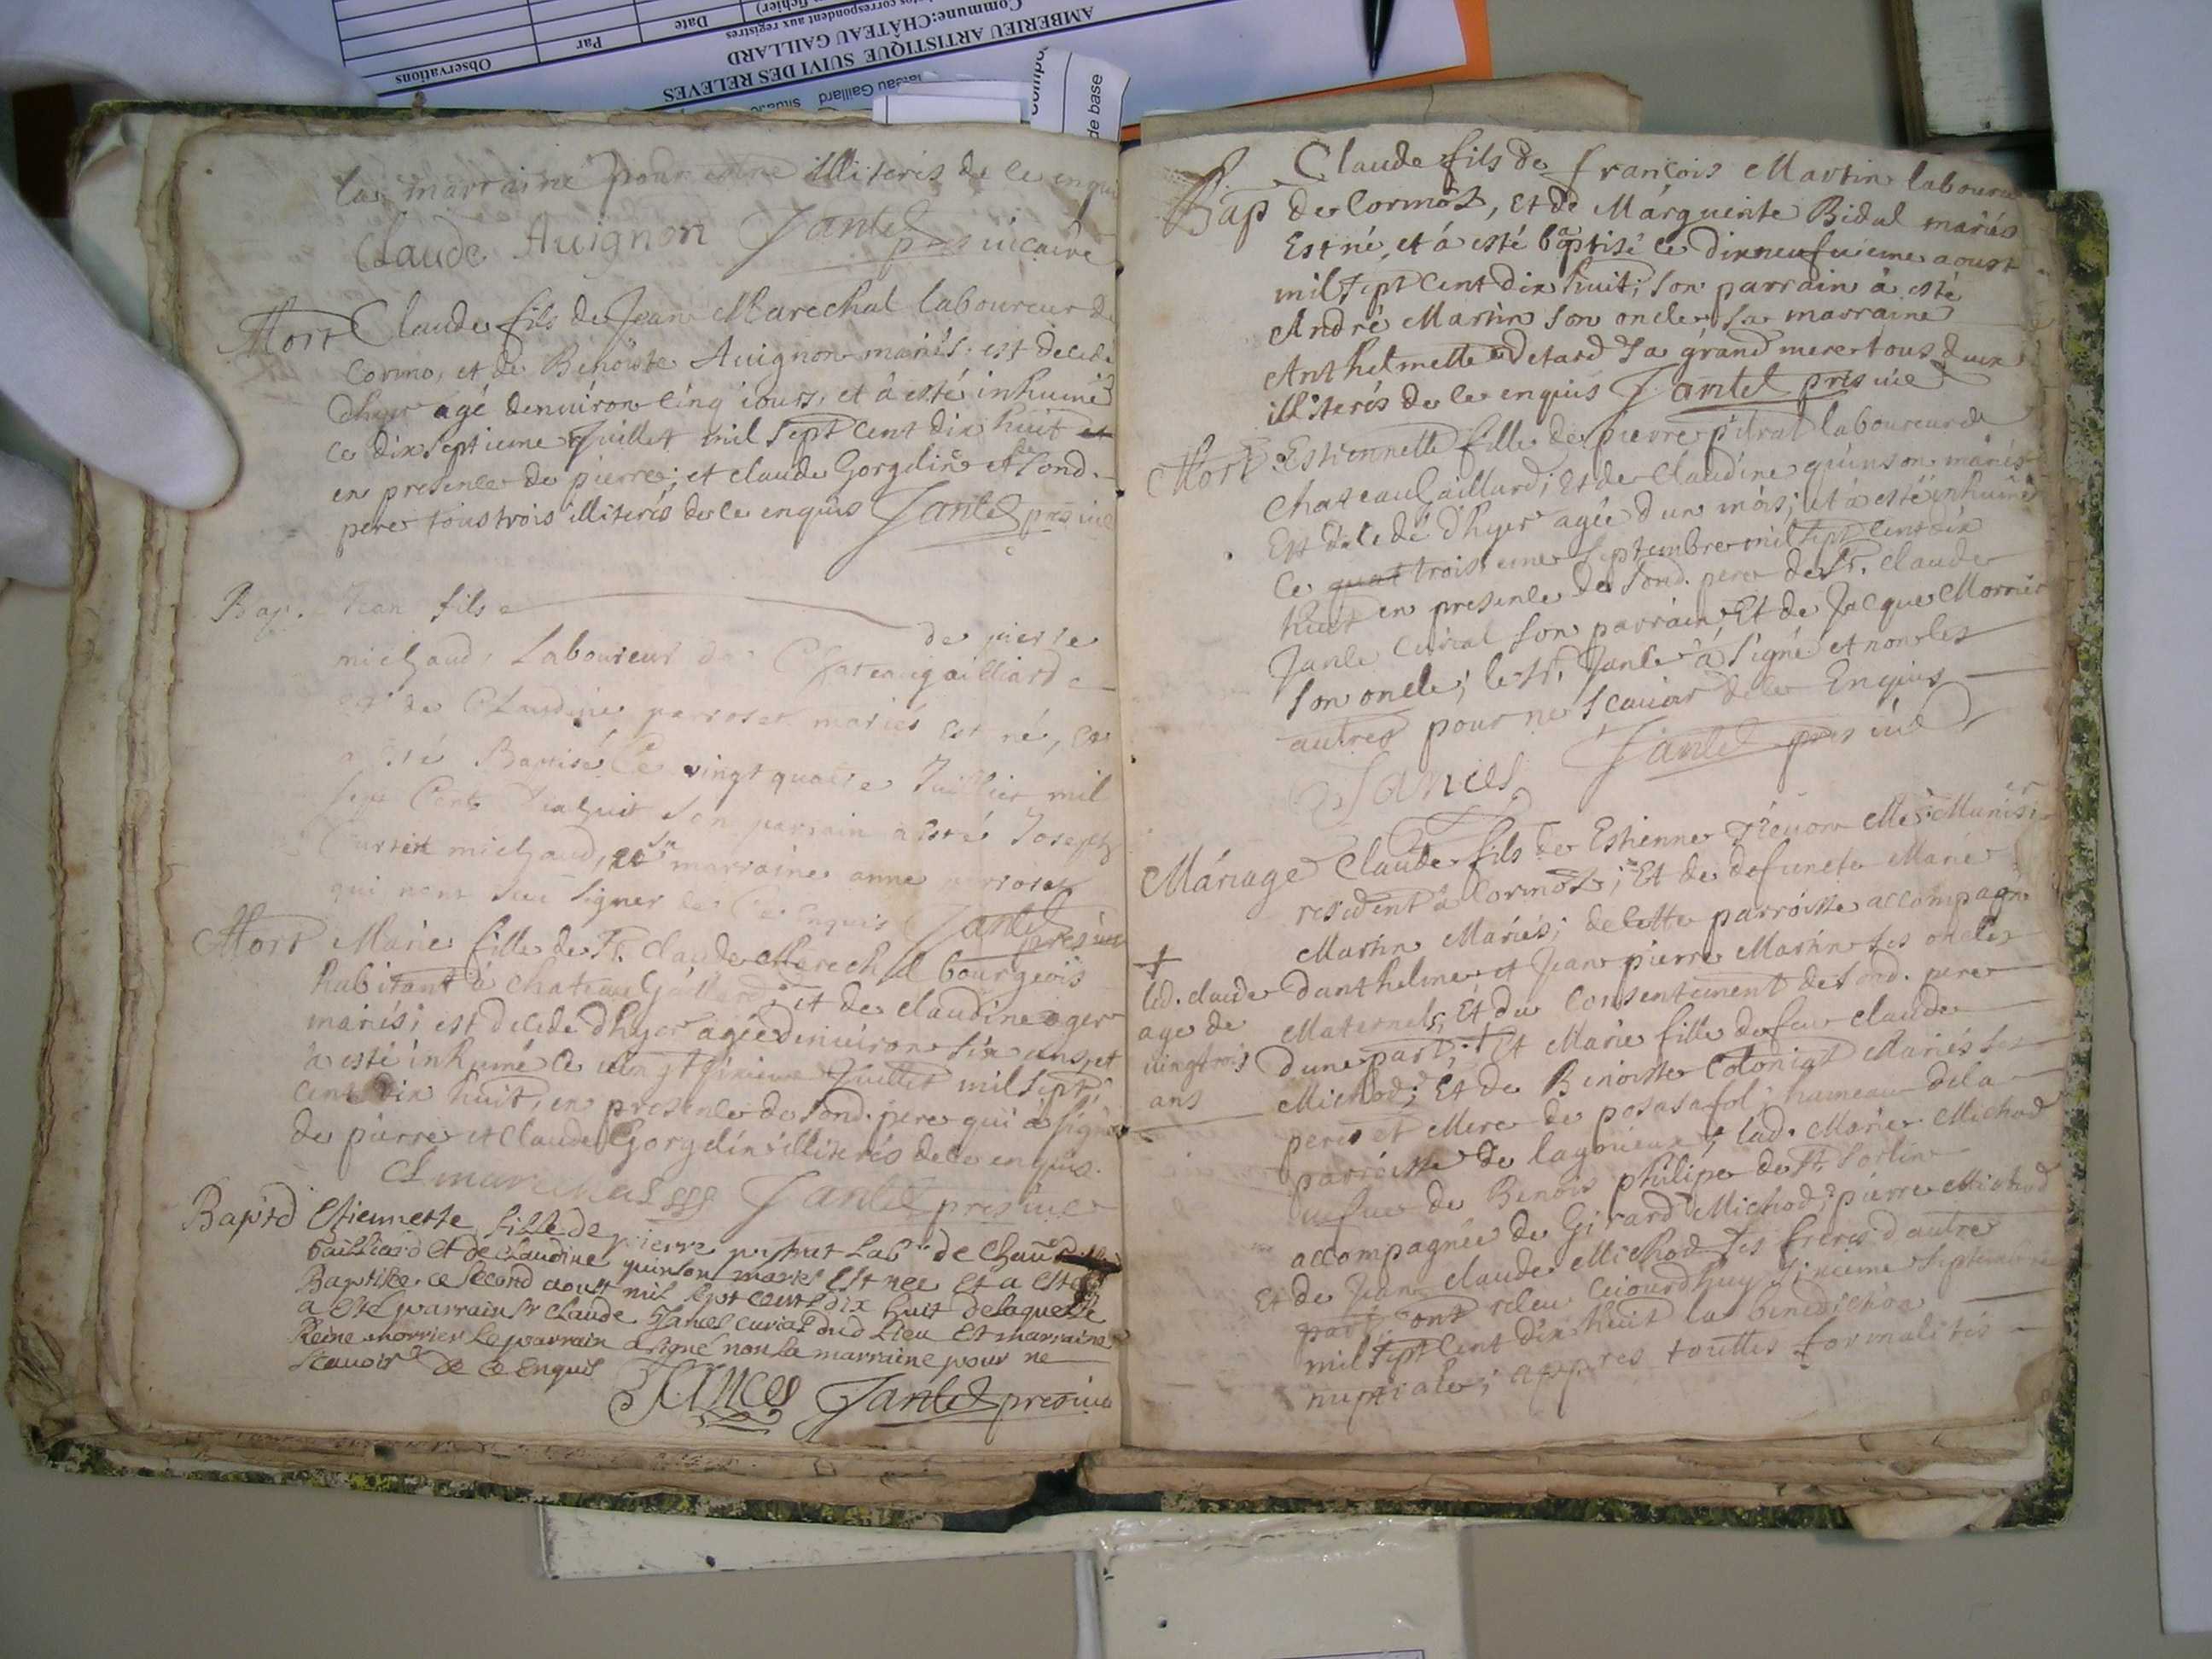 AMBERIEU ARTISTIQUE SUIVI DES RELEVES
Commune: CHÂTEAU GAILLARD
correspondent aux registres
Observations
Par
Date
fichier)
Gaillard
de base
la marraine pour estre illiterés de ce enquis
Claude Auignon Jantel pres uicaire
Mort Claude fils de Jean Marechal laboureur de
Cormo, et de Benoiste Auignon mariés est decedé
dhyer agé denuiron cinq iours, et à esté inhumé
ce dixseptieme Juillet mil sept cent dix huit
en presence de pierre; et claude Gorgelin et de sond.
pere tous trois illiterés de ce enquis Jantel pres uic
Bap. Jean fils
de pierre
michaud, Laboureur de Chateaugailliard
et de Claudine parroset mariés est né, et
a esté Baptisé Ce vingt quatre Juillier mil
sept Cent Dixhuit son parrain a esté Joseph
michaud, et sa marraine anne parroset
qui nont sceu signer de Ce Enquis Jantel pres uic
Mort Marie fille de Sr. Claude Marechal bourgeois
habitant à chateau Gaillard; et de claudine oger
mariés; est decedé dhyer agée denuiron six ans, et
à esté inhumé ce uingt sixieme Juillet mil sept
cent dix huit, en presence de sond. pere qui a signé
de pierre et claude Gorgelin illiterés de ce enquis.
Cl marechal Jantel pres uic
Baptd Estiennette fille de pierre pitrat Labr de Chau
Gailliard Et de Claudine quinson mariés Est nee Et a esté
Baptisée ce second aoust mil sept cent dix huit de laquelle
a esté parrain sr claude Janiel curial dud Lieu Et marraine
Reine morrier Le parrain a signé non La marraine pour ne
scauoir de ce Enquis
Janiel Jantel pres uic
Claude fils de françois Martin laboureur
Bap de Cormoz, et de Marguerite Bidal mariés
Est né, et à esté baptisé ce dixneufuieme aoust
mil sept cent dix huit; son parrain à esté
André Martin son oncle, sa marraine
Anthelmette detard sa grand mere tous deux
illiterés de ce enquis Jantel pres uic
Mort Estiennette fille de pierre pitrat laboureur de
Chateau Gaillard; Et de Claudine quinson mariés
Est decedé dhyer agée d un mois; et à esté inhumé
ce quat troisieme septembre mil sept cent dix
huit en presence de sond. pere de Sr. Claude
Janle Curial son parrain Et de Jacque Morrier
son oncle; le Sr. Janle à signé et non les
autres pour ne scauoir de ce Enquis
Janiel Jantel pres uic
Mariage Claude fils de Estienne Treuon Me. Munier
resident à Cormoz; Et de defuncte Marie
Martin Mariés; de cette parroisse accompagné
danthelme et Jean pierre Martin ses oncles
Maternels, Et du Consentement de sond. pere
dune part; + Et Marie fille de feu claude
Michod; Et de Benoiste Coloniat Mariés ses
pere et Mere de posasafol; hameau de la
parroisse de lagnieux; lad. Marie Michod
uefue de Benois philipe de St Sorlin
accompagnée de Girard Michod; pierre Michod
Et de Jean claude Michod ses freres d autre
part ont receu ceiourdhuy sixieme septembre
mil sept cent dix huit la benediction
nuptiale; appres touttes formalités
+
led. claude
age de
uingtrois
ans